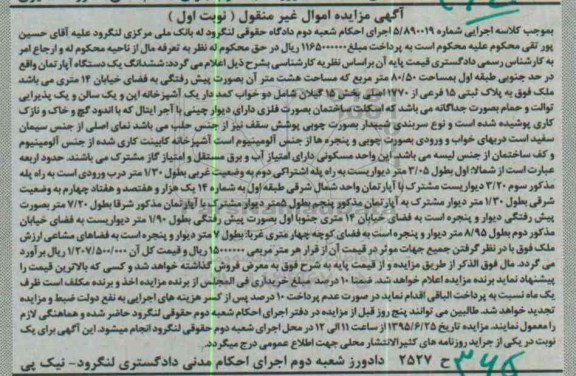 آگهی مزایده اموال غیر منقول ( نوبت اول )
بموجب کلاسه اجرایی شماره ۵/۸۹۰۰۱۹ اجرای احکام شعبه دوم دادگاه حقوقی لنگرود له بانک ملی مرکزی لنگرود علیه آقای حسین
پور تقی محکوم علیه محکوم است به پرداخت مبلغ ۱۱۶۵۰۰۰۰۰۰ ریال در حق محکوم له نظر به تعرفه مال از ناحیه محکوم له و ارجاع امر
به کارشناس رسمی دادگستری قیمت پایه آن براساس نظریه کارشناسی بشرح ذیل اعلام می گردد: ششدانگ یک دستگاه آپارتمان واقع
در حد جنوبی طبقه اول بمساحت ۸۰/۵۰ متر مربع که مساحت هشت متر آن بصورت پیش رفتگی به فضای خیابان ۱۴ متری می باشد
ملک فوق به پلاک ثبتی ۱۵ فرعی از ۱۷۷۰ اصلی بخش ۱۵ گیلان شامل دو خواب کمد دار یک آشپزخانه اپن و یک سالن و یک پذیرایی
توالت و حمام بصورت جداگانه می باشد که اسکلت ساختمان بصورت فلزی دارای دیوار چینی با آجر اینال که با اندود گچ و خاک و نازک
کاری پوشیده شده است و نوع سربندی شیبدار بصورت چوبی پوشش سقف نیز از جنس حلب می باشد نمای اصلی از جنس سیمان
سفید است دربهای خواب و ورودی بصورت چوبی و پنجره ها از جنس آلومینیوم است آشپزخانه کابینت کاری شده از جنس آلومینیوم
و کف ساختمان از جنس لیسه می باشد این واحد مسکونی دارای امتیاز آب و برق مستقل و امتیاز گاز مشترک می باشند. حدود اربعه
عبارت است از شمالا: اول بطول ۳/۰۵ متر دیواریست به راه پله اشتراکی دوم به وضعیت غربی بطول ۱/۳۰ متر درب ورودی است به راه پله
مذکور سوم ۳/۲۰ دیواریست مشترک با آپارتمان واحد شمال شرقی طبقه اول به شماره ۱۴ یک هزار و هفتصد و هفتاد چهارم به وضعیت
شرقی بطول ۱/۳۰ متر دیوار مشترک به آپارتمان مذکور پنجم بطول ۵متر دیوار مشترک با آپارتمان مذکور شرقا بطول ۷/۲۰ متر بصورت
پیش رفتگی دیوار و پنجره است به فضای خیابان ۱۴ متری جنوبا اول بصورت پیش رفتگی بطول ۱/۹۰ متر دیواریست به فضای خیابان
مذکور دوم بطول ۸/۹۵ متر دیوار و پنجره است به فضای کوچه چهار متری غربا: بطول ۷ متر دیوار و پنجره است به فضاهای مشاعی ارزش
ملک فوق با در نظر گرفتن جمیع جهات موثر در قیمت آن از قرار هر متر مربعی ۱۵۰۰۰۰۰۰ ریال و قیمت کل آن ۱/۲۰۷/۵۰۰/۰۰۰ ریال برآورد
می گردد. مال فوق الذکر از طریق مزایده و از قیمت پایه به شرح فوق به معرض فروش گذاشته خواهد شد و کسی که بالاترین قیمت را
پیشنهاد نماید برنده مزایده اعلام خواهد شد. ضمنا ۱۰ درصد مبلغ خریداری فی المجلس از برنده مزایده اخذ و برنده مکلف است ظرف
یک ماه نسبت به پرداخت الباقی اقدام نماید در صورت عدم پرداخت ۱۰ درصد پس از کسر هزینه های اجرایی به نفع دولت ضبط و مزایده
تجدید خواهد شد. طالبین می توانند پنج روز قبل از مزایده در دفتر اجرای احکام شعبه دوم حقوقی لنگرود حاضر شده و هماهنگی لازم
را معمول نمایند. مزایده تاریخ ۱۳۹۵/۶/۲۵ از ساعت ۱۱ الی ۱۲ در محل اجرای شعبه دوم حقوقی لنگرود انجام میشود. این آگهی برای یک
نوبت در یکی از جراید روزنامه های کثیرالانتشار محلی جهت اطلاع عمومی درج میگردد.
ح ۲۵۲۷ دادورز شعبه دوم اجرای احکام مدنی دادگستری لنگرود- نیک پی